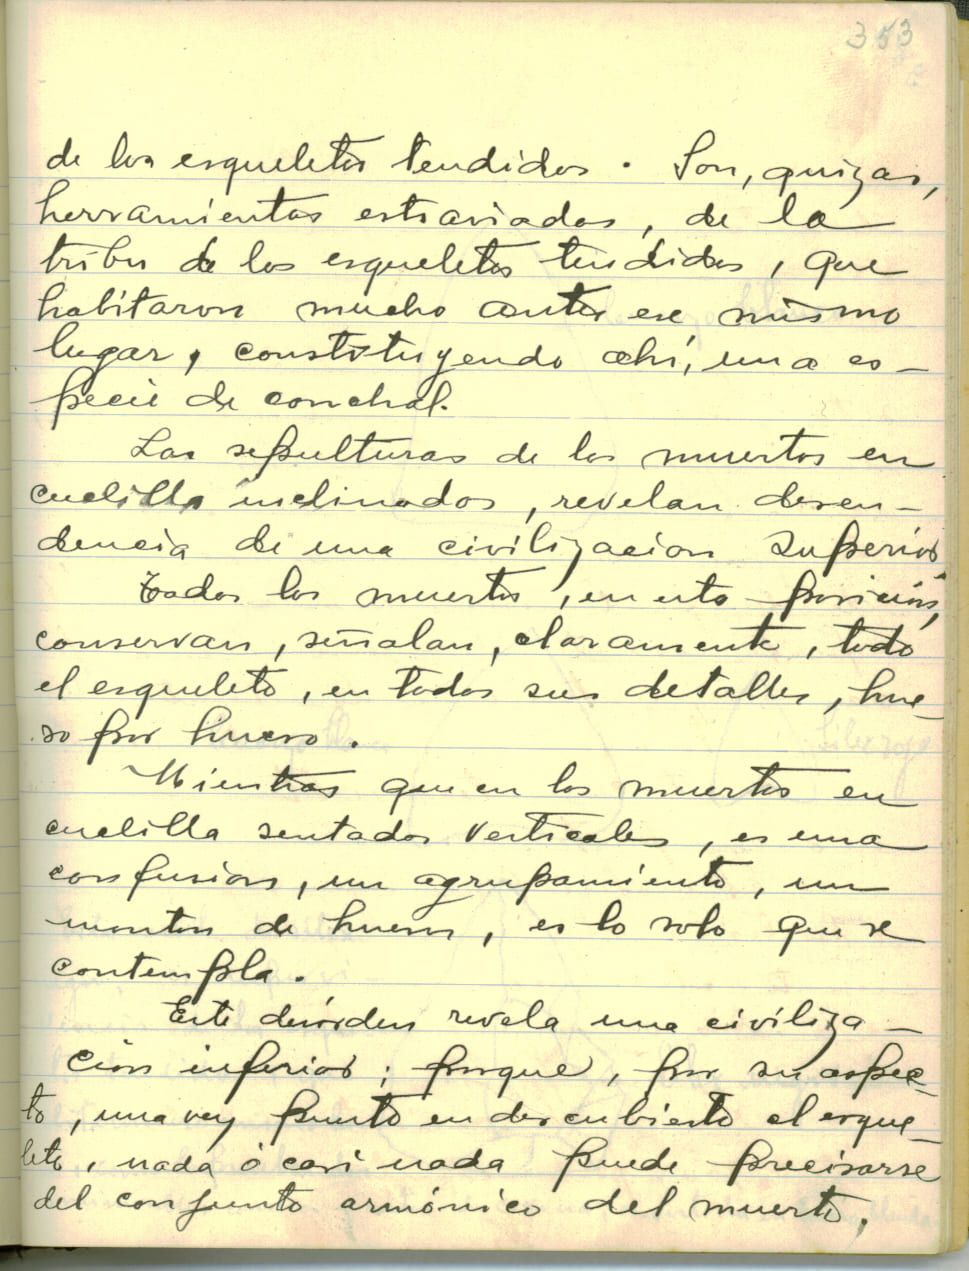 353
de los esqueletos tendidos. Son, quizas,
herramientas estraviadas, de la
tribu de los esqueletos tendidos, que
habitaron mucho antes ese mismo
lugar, constituyendo ahí, una es-
pecie de conchal.
Las sepulturas de los muertos en
cuclilla inclinados, revelan desen-
dencia de una civilizacion superior.
Todos los muertos, en esta posición,
conservan, señalan, claramente, todo
el esqueleto, en todos sus detalles, hue-
so por hueso.
Mientras que en los muertos en
cuclilla sentados verticales, es una
confusion, un agrupamiento, un
monton de huesos, es lo solo que se
contempla.
Este desórden revela una civiliza-
ción inferior; porque, por su aspec-
to, una vez puesto en descubierto el esque-
leto, nada ó casi nada puede precisarse
del conjunto armónico del muerto,